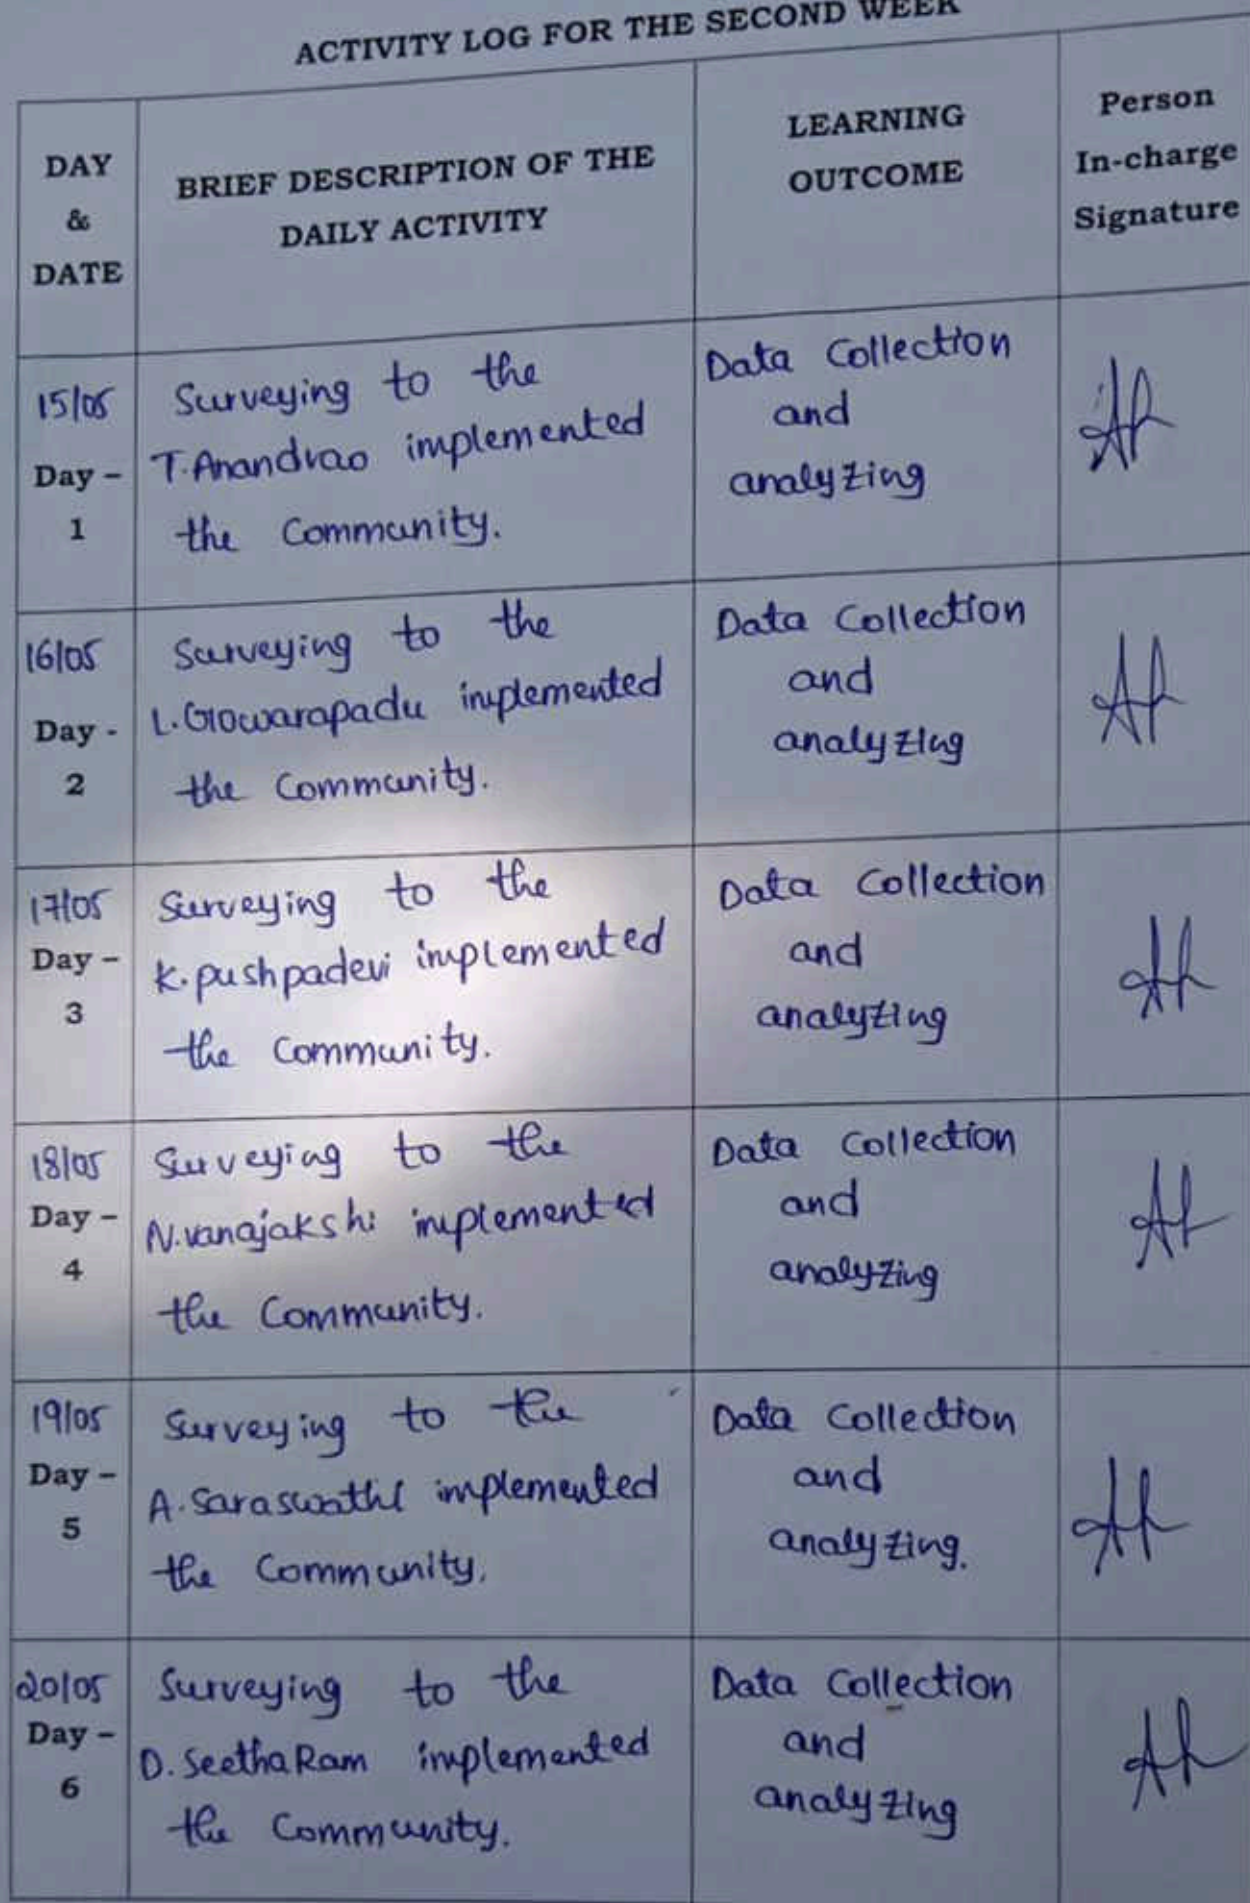 ACTIVITY LOG FOR THE SECOND WEEK
DAY
&
DATE
BRIEF DESCRIPTION OF THE
DAILY ACTIVITY
LEARNING
OUTCOME
Person
In-charge
Signature
15/05
Day –
1
Surveying to the
T.Anandrao implemented
the Community.
Data Collection
and
analyzing
16/05
Day -
2
Surveying to the
L.Gowarapadu implemented
the Community.
Data Collection
and
analyzing
17/05
Day –
3
Surveying to the
K.pushpadevi implemented
the Community.
Data Collection
and
analyzing
18/05
Day –
4
Surveying to the
N.vanajakshi implemented
the Community.
Data Collection
and
analyzing
19/05
Day –
5
Surveying to the
A.Saraswathi implemented
the Community.
Data Collection
and
analyzing.
20/05
Day –
6
Surveying to the
D.SeethaRam implemented
the Community.
Data Collection
and
analyzing